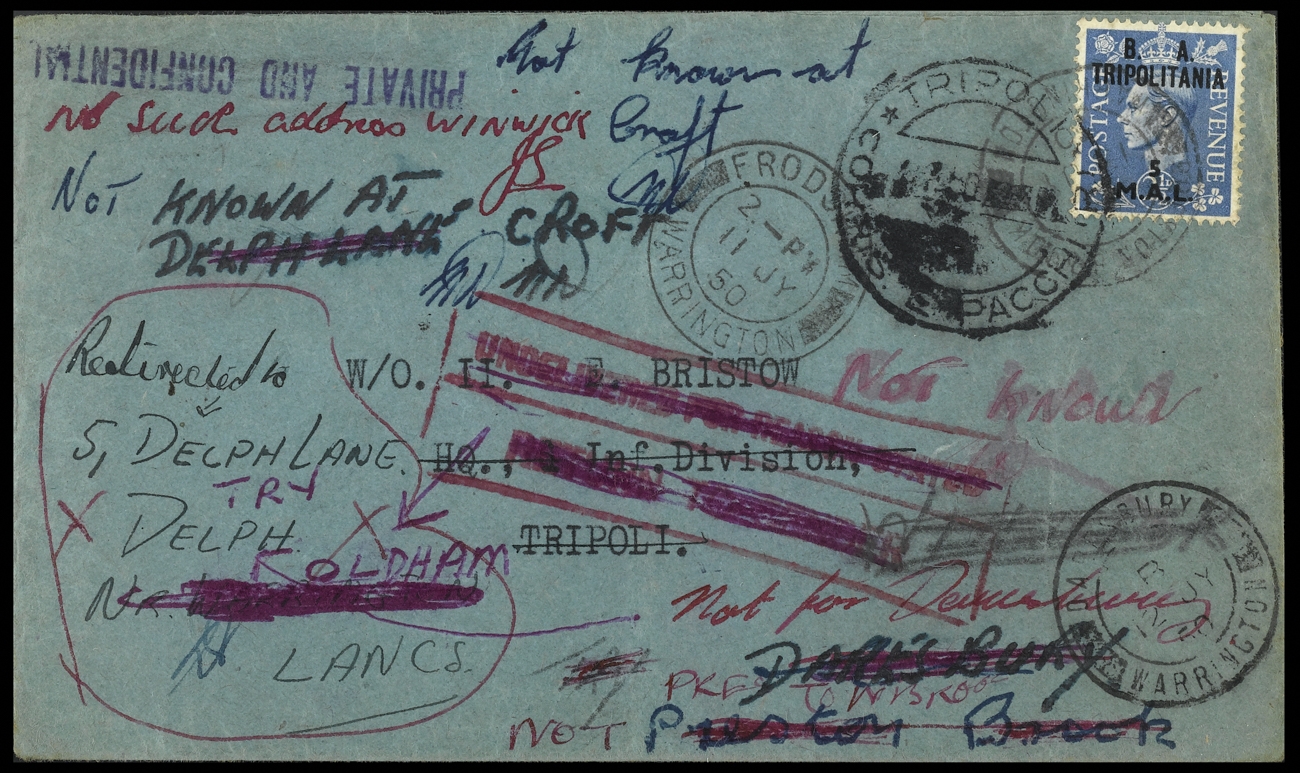 PRIVATE AND CONFIDENTIAL
Not known at
Croft
No Such address WINWICK
JS
NOT KNOWN AT
DELPH LANE CROFT
B. A.
TRIPOLITANIA
POSTAGE REVENUE
5
M.A.L.
TRIPOLI
CORRISP. E PACCHI
FRODS
2-PM
11 JY
50
WARRINGTON
Redirected to
5, DELPH LANE.
TRY
DELPH
OLDHAM
Nr. WARRINGTON
LANCS.
W/O. II. E. BRISTOW
HQ., 1 Inf. Division,
TRIPOLI.
UNDELIVERED FOR REASON STATED
NOT KNOWN
DARESBURY
12 JY
WARRINGTON
Not for Daresbury
DARESBURY
NOT Preston Brook